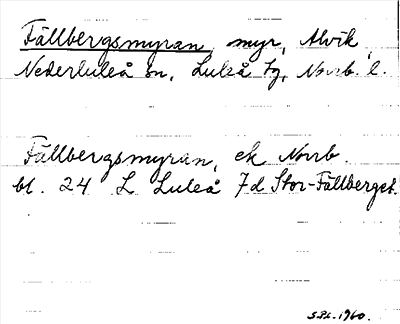 Fällbergsmyran myr, Alvik,
Nederluleå sn, Luleå tg, Norrb. l.
Fällbergsmyran, ek Norrb.
bl. 24 L Luleå 7d Stor-Fällberget.
S.P.L. 1960.